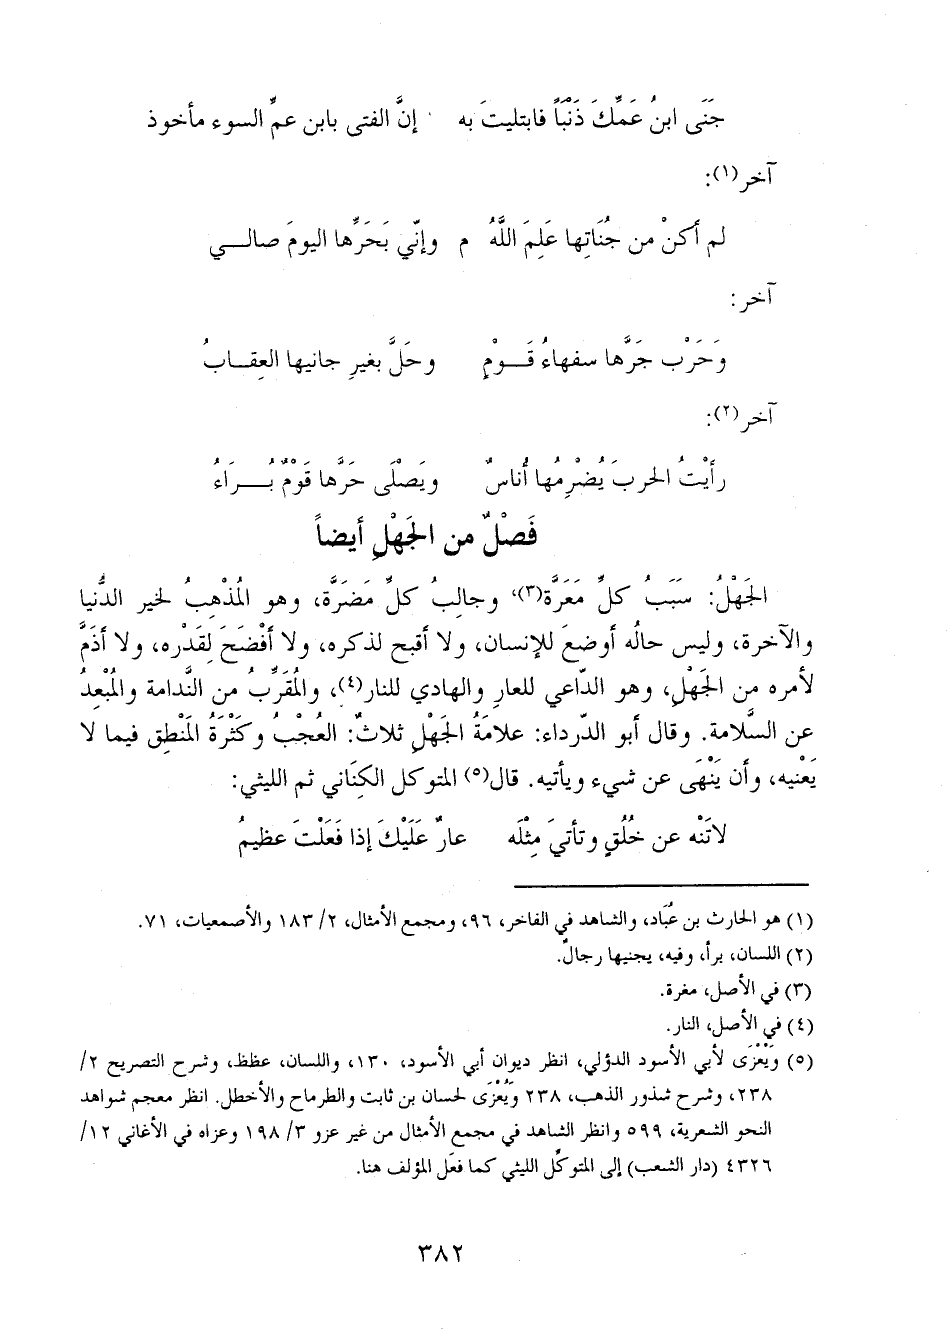 جَنَى ابنُ عَمِّكَ ذَنْبَاً فابتليتَ به إنَّ الفتى بابن عمِّ السوء مأخوذ
آخر(١):
لم أكنْ من جُنَاتِها عَلِمَ اللَّهُ م وإنّي بَحَرِّها اليومَ صالـــي
آخر:
وَحَرْبٍ جَرَّها سفهاءُ قَـــوْمٍ وحَلَّ بغيرِ جانيها العِقــابُ
آخر(٢):
رأَيْتُ الحربَ يُضْرِمُها أُناسٌ ويَصْلَى حَرَّها قَوْمٌ بُــــرَاءُ
فَصْلٌ من الجَهْلِ أيضاً
الجَهْلُ: سَبَبُ كلِّ مَعَرَّة(٣)، وجالِبُ كلِّ مَضَرَّة، وهو المُذْهِبُ لخير الدُّنيا
والآخرة، وليس حالُه أوضعَ للإنسان، ولا أقبح لذكره، ولا أَفْضَحَ لِقَدْره، ولا أَذَمَّ
لأمره من الجَهْلِ، وهو الدّاعي للعارِ والهادي للنار(٤)، والمُقَرِّبُ من النَّدامة والمُبْعِدُ
عن السَّلامة. وقال أبو الدّرداء: علامَةُ الجَهْلِ ثلاثٌ: العُجْبُ وكَثْرَةُ المَنْطِق فيما لا
يَعْنيه، وأن يَنْهَى عن شيء ويأتيه. قال(٥) المتوكل الكِنَاني ثم الليثي:
لاتَنْه عن خُلُقٍ وتأتيَ مِثْلَه عارٌ عَلَيْكَ إذا فَعَلْتَ عظيمُ
(١) هو الحارث بن عُبَاد، والشاهد في الفاخر، ٩٦، ومجمع الأمثال، ٢/ ١٨٣ والأصمعيات، ٧١.
(٢) اللسان، برأ، وفيه، يجنيها رجالٌ.
(٣) في الأصل، مغرة.
(٤) في الأصل، النار.
(٥) ويُعْزَى لأبي الأسود الدؤلي، انظر ديوان أبي الأسود، ١٣٠، واللسان، عظظ، وشرح التصريح ٢/
٢٣٨، وشرح شذور الذهب، ٢٣٨ ويُعْزَى لحسان بن ثابت والطرماح والأخطل. انظر معجم شواهد
النحو الشعرية، ٥٩٩ وانظر الشاهد في مجمع الأمثال من غير عزو ٣/ ١٩٨ وعزاه في الأغاني ١٢/
٤٣٢٦ (دار الشعب) إلى المتوكِّل الليثي كما فعَل المؤلف هنا.
٣٨٢